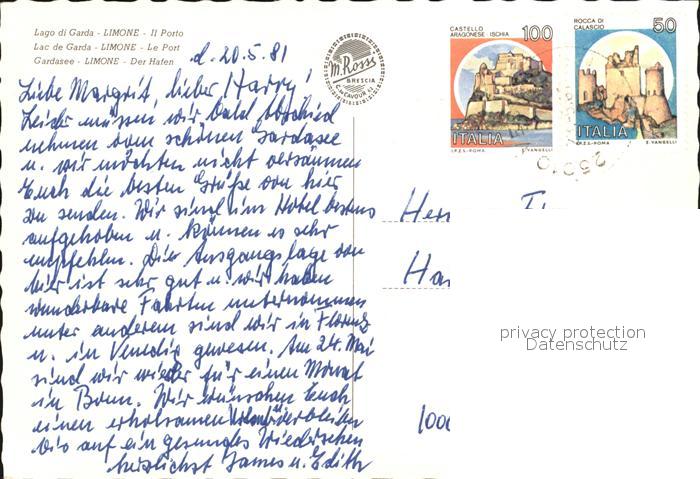 Lago di Garda - LIMONE - Il Porto
Lac de Garda - LIMONE - Le Port
Gardasee - LIMONE - Der Hafen
d. 20.5.81
Liebe Margrit, lieber Harry!
Leider müssen wir bald Abschied
nehmen vom schönen Gardasee
u. wir möchten nicht versäumen
Euch die besten Grüße von hier
zu senden. Wir sind im Hotel bestens
aufgehoben u. können es sehr
empfehlen. Die Ausgangslage von
hier ist sehr gut u. wir haben
wunderbare Fahrten unternommen
unter anderem sind wir in Florenz
u. in Venedig gewesen. Am 24. Mai
sind wir wieder für einen Monat
in Bonn. Wir wünschen Euch
einen erholsamen Urlaub verbleiben
bis auf ein gesundes Wiedersehen
herzlichst James u. Edith
M. Rossi
BRESCIA
CASTELLO
ARAGONESE ISCHIA
100
ITALIA
I.P.Z.S.-ROMA
E. VANGELLI
ROCCA DI
CALASCIO
50
ITALIA
I.P.Z.S.-ROMA
E. VANGELLI
25010
Her
Ha
privacy protection
Datenschutz
1000